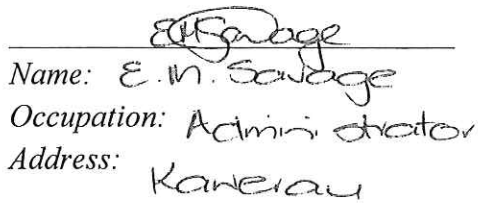 EMSavage
Name: E.M. Savage
Occupation: Administrator
Address:
Kawerau